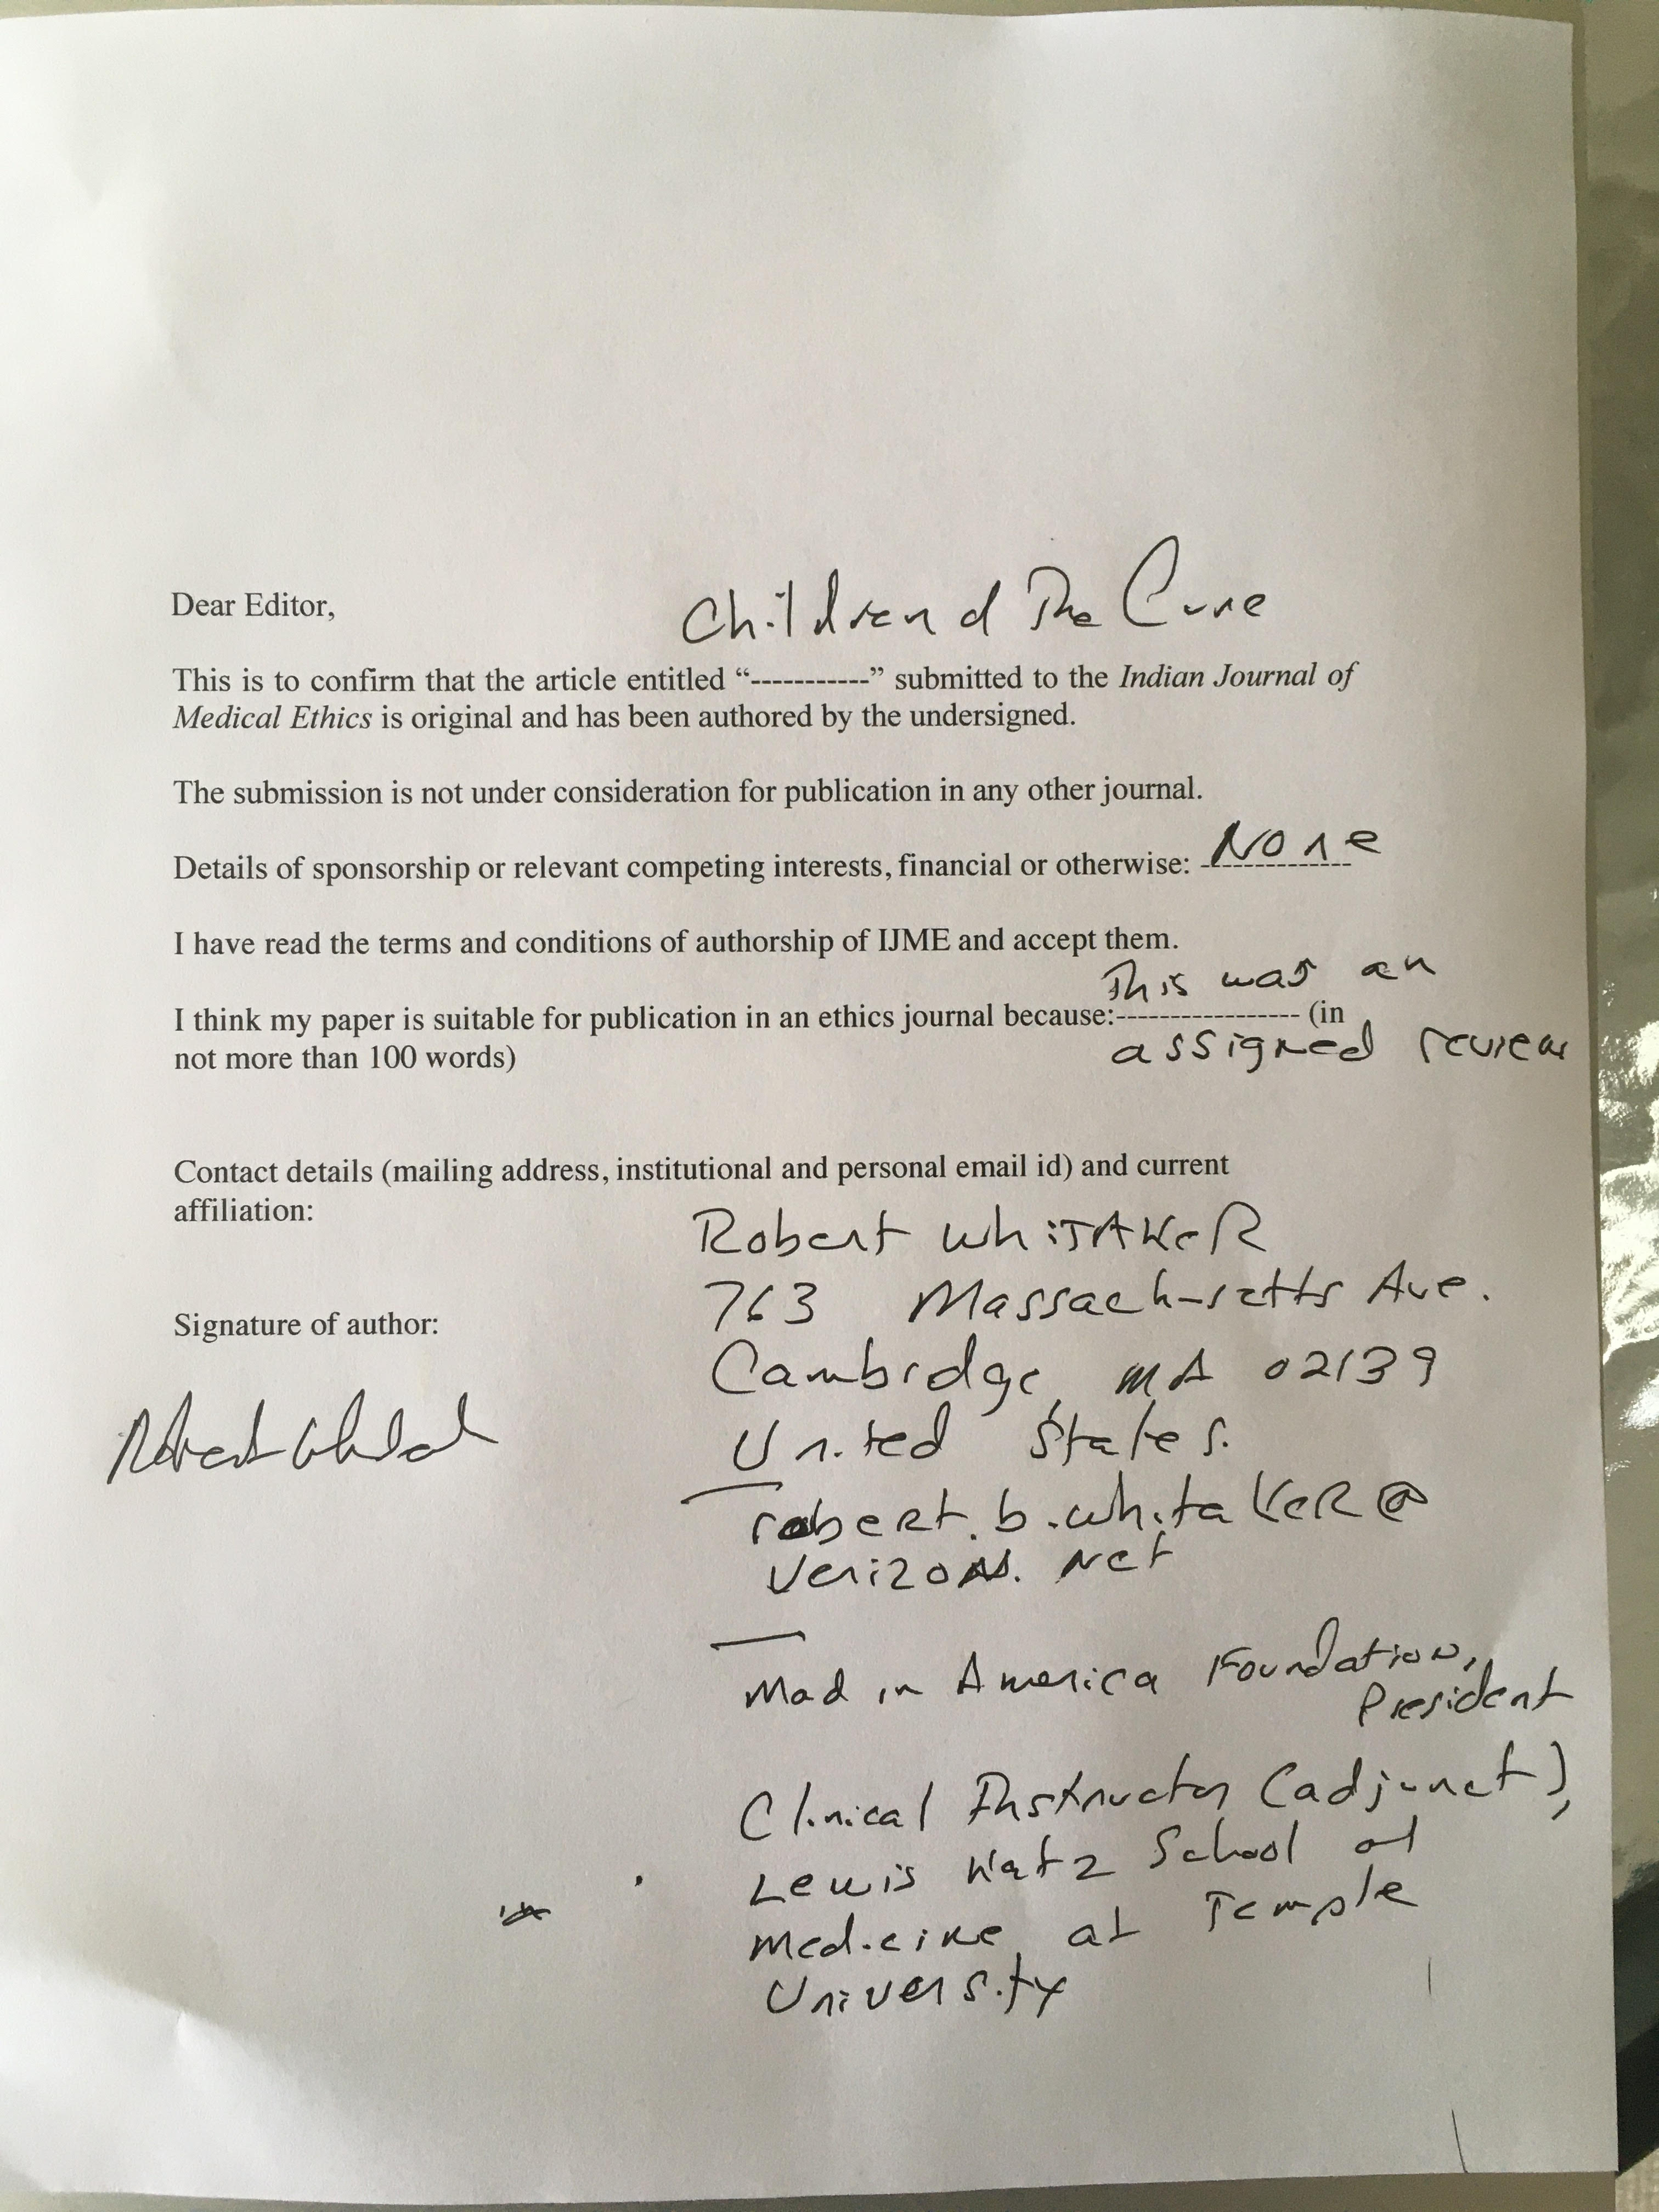 Dear Editor,
Children d The Cure
This is to confirm that the article entitled “-----------” submitted to the Indian Journal of
Medical Ethics is original and has been authored by the undersigned.
The submission is not under consideration for publication in any other journal.
Details of sponsorship or relevant competing interests, financial or otherwise: -------------- None
I have read the terms and conditions of authorship of IJME and accept them.
This was an
I think my paper is suitable for publication in an ethics journal because:----------------- (in
assigned review
not more than 100 words)
Contact details (mailing address, institutional and personal email id) and current
affiliation:
Robert WhiTAKeR
763 Massachusetts Ave.
Signature of author:
Cambridge, MA 02139
Robert Whitaker
United States.
robert.b.whitakeR@
verizoN.net
Mad in America Foundation,
President
Clinical Instructor (adjunct),
Lewis Katz School of
Medicine at Temple
University